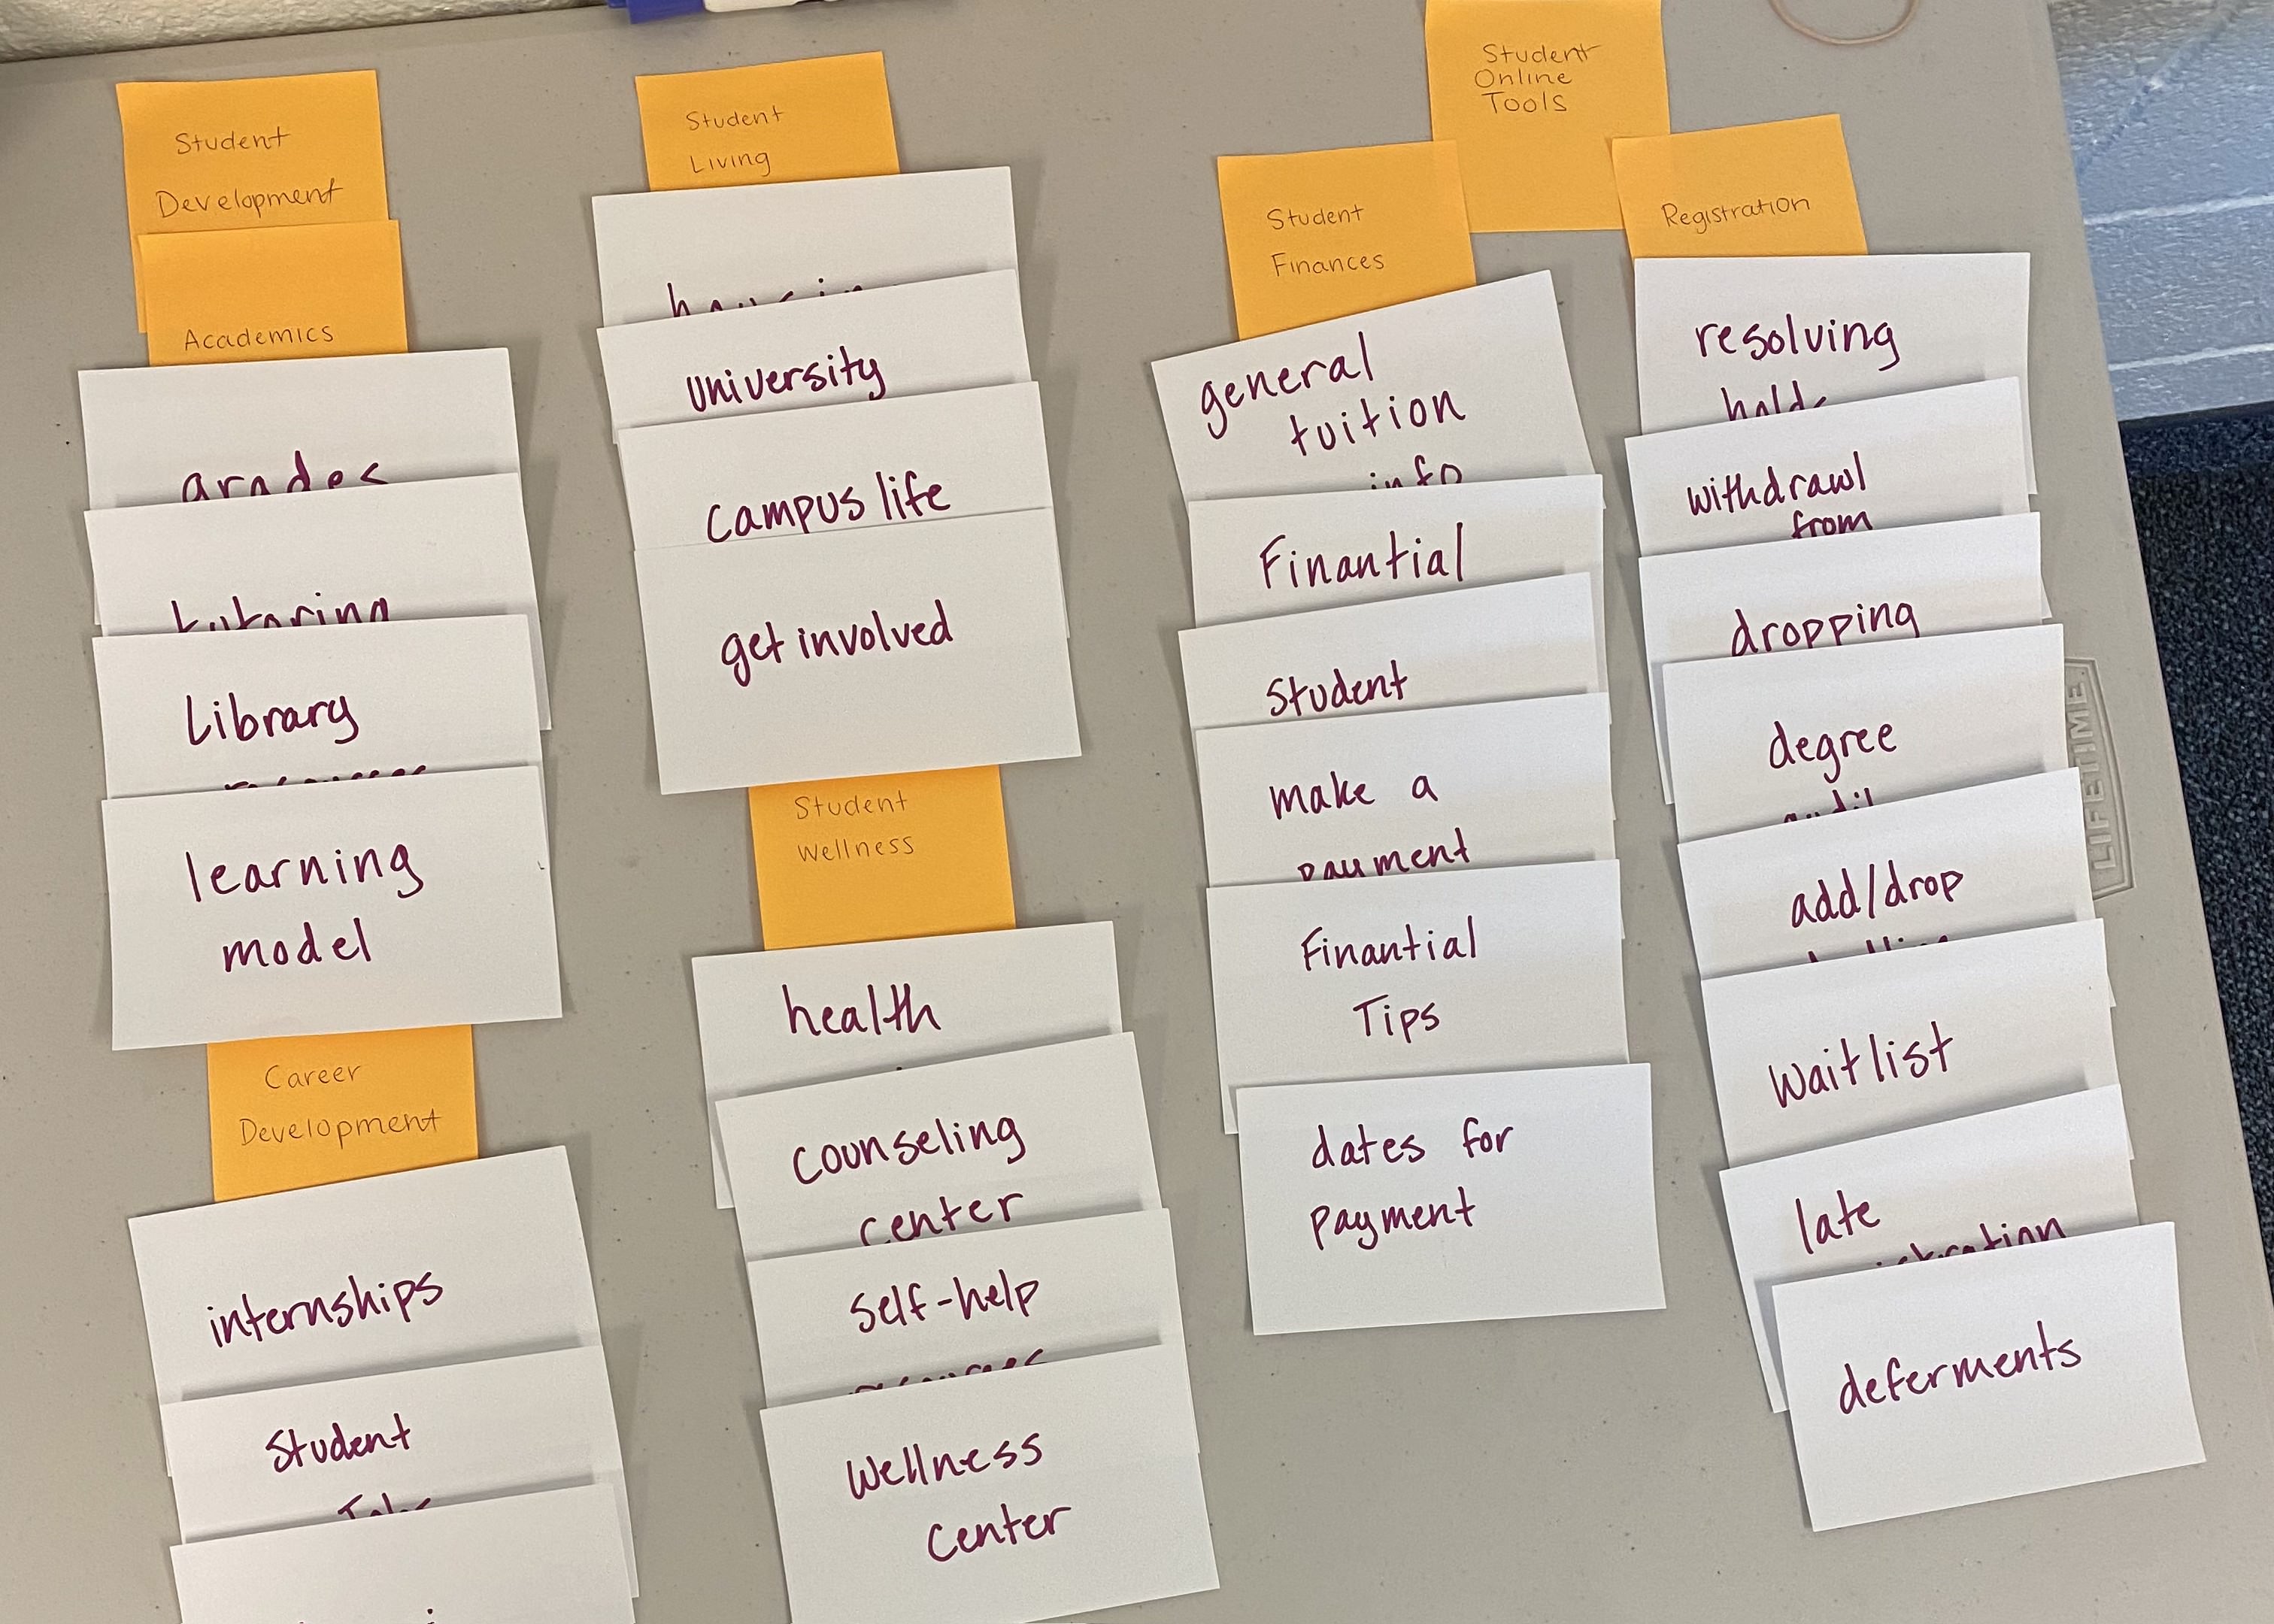 Student
Development
Academics
grades
tutoring
Library
resources
learning
model
Career
Development
internships
Student
Jobs
Student
Living
housing
University
campus life
get involved
Student
Wellness
health
counseling
center
Self-help
resources
Wellness
Center
Student
Online
Tools
Student
Finances
general
tuition
info
Finantial
Student
make a
payment
Finantial
Tips
dates for
payment
Registration
resolving
holds
withdrawl
from
dropping
degree
audit
add/drop
Waitlist
late
deferments
LIFETIME